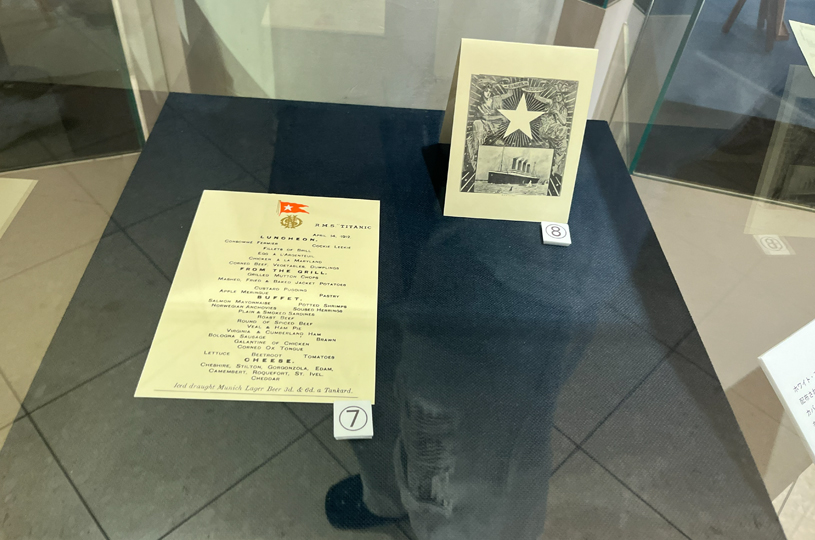 R.M.S. TITANIC
APRIL 14, 1912.
LUNCHEON.
CONSOMMÉ FERMIER COCKIE LEEKIE
FILLETS OF BRILL
EGG À L'ARGENTEUIL
CHICKEN À LA MARYLAND
CORNED BEEF, VEGETABLES, DUMPLINGS
FROM THE GRILL.
GRILLED MUTTON CHOPS
MASHED, FRIED & BAKED JACKET POTATOES
CUSTARD PUDDING
APPLE MERINGUE PASTRY
BUFFET.
SALMON MAYONNAISE POTTED SHRIMPS
NORWEGIAN ANCHOVIES SOUSED HERRINGS
PLAIN & SMOKED SARDINES
ROAST BEEF
ROUND OF SPICED BEEF
VEAL & HAM PIE
VIRGINIA & CUMBERLAND HAM
BOLOGNA SAUSAGE BRAWN
GALANTINE OF CHICKEN
CORNED OX TONGUE
LETTUCE BEETROOT TOMATOES
CHEESE.
CHESHIRE, STILTON, GORGONZOLA, EDAM,
CAMEMBERT, ROQUEFORT, ST. IVEL,
CHEDDAR
Iced draught Munich Lager Beer 3d. & 6d. a Tankard.
⑦
⑧
ホワイト
配布さ
カバ